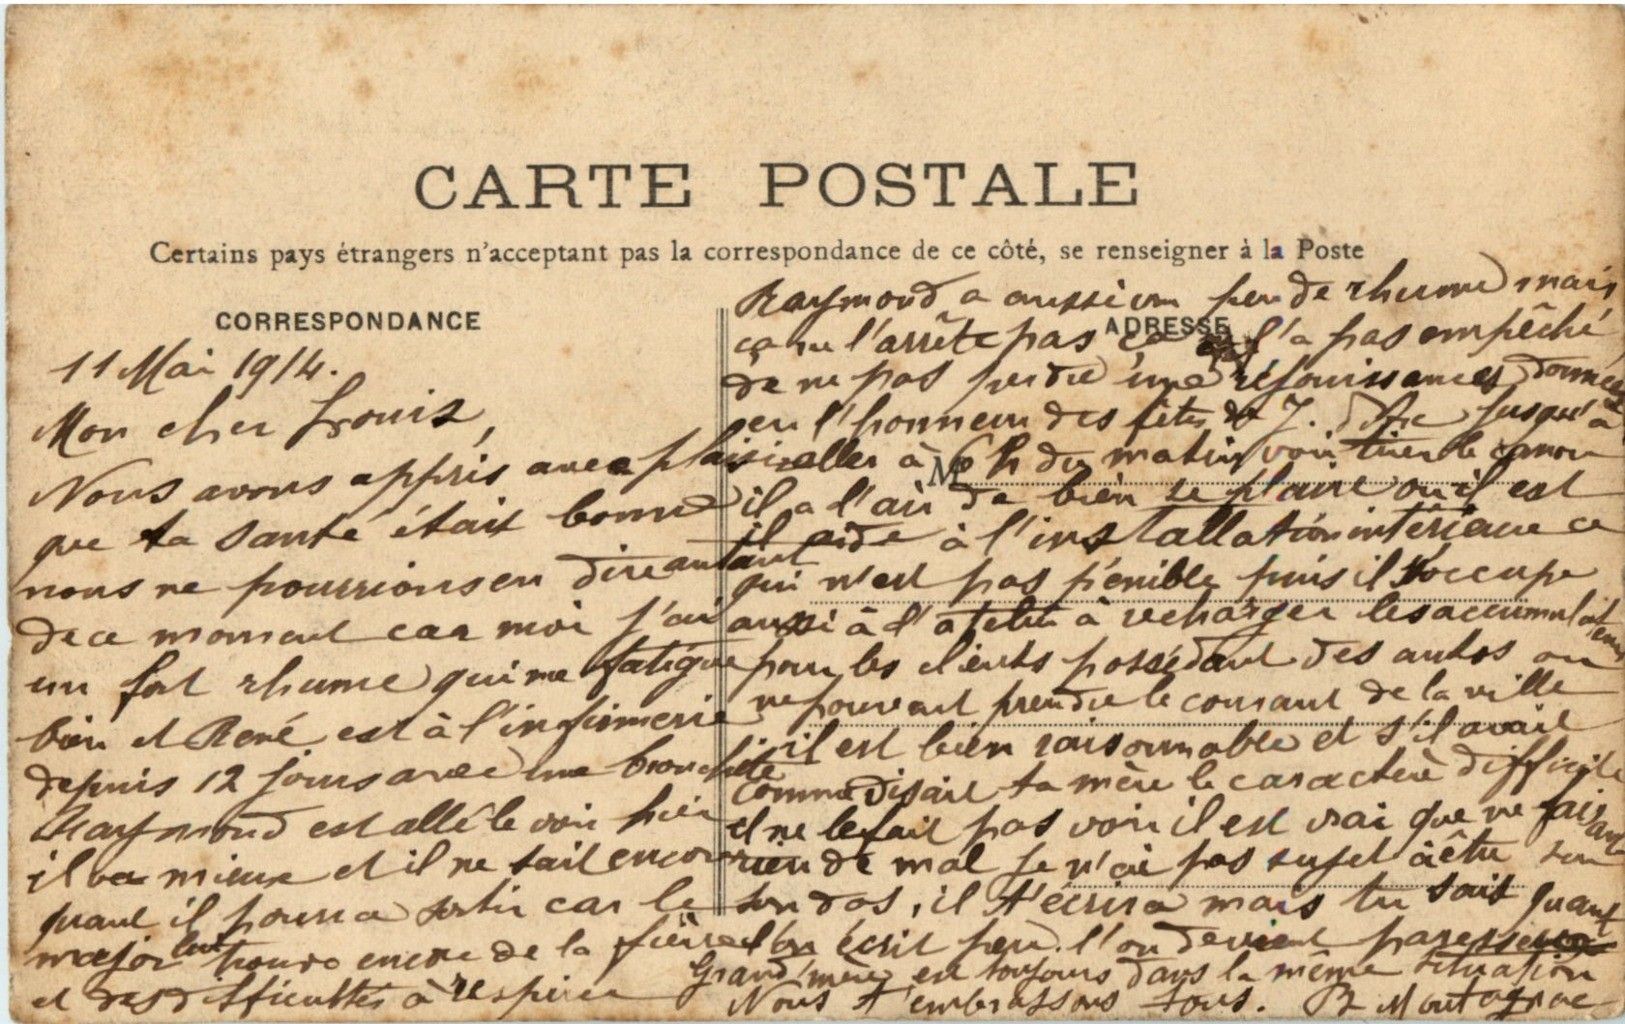 CARTE POSTALE
Certains pays étrangers n'acceptant pas la correspondance de ce côté, se renseigner à la Poste
CORRESPONDANCE
11 Mai 1914.
Mon cher Louis,
Nous avons appris avec plaisir
que ta santé était bonne
nous ne pourrions en dire autant
de ce moment car moi j'ai
un fort rhume qui me fatigue
bien et René est à l'infirmerie
depuis 12 jours avec une bronchite
Raymond est allé le voir hier
il va mieux et il ne sait encore
quant il pourra sortir car le
major lui trouve encore de la fièvre
et des difficultés à respirer
ADRESSE
M
Raymond a aussi un peu de rhume mais
ça ne l'arrête pas ça l'a pas empêché
de ne pas perdre une réjouissances données
en l'honneur des fêtes de J. d'Arc jusqu'à
aller à h du matin voir tirer le canon
il a l'air de bien se plaire où il est
il aide à l'installation intérieure ce
qui n'est pas pénible puis il s'occupe
aussi à l'atelier à recharger les accumulateurs
pour les clients possédant des autos ou
ne pouvant prendre le courant de la ville
il est bien raisonnable et s'il avait
comme disait ta mère le caractère difficile
il ne le fait pas voir il est vrai que ne faisant
rien de mal je n'ai pas sujet à être sur
son dos, il t'écrira mais tu sais quant
l'on écrit peu l'on devient paresseux
Grand'mère est toujours dans la même situation
Nous t'embrassons tous. B Montagnac